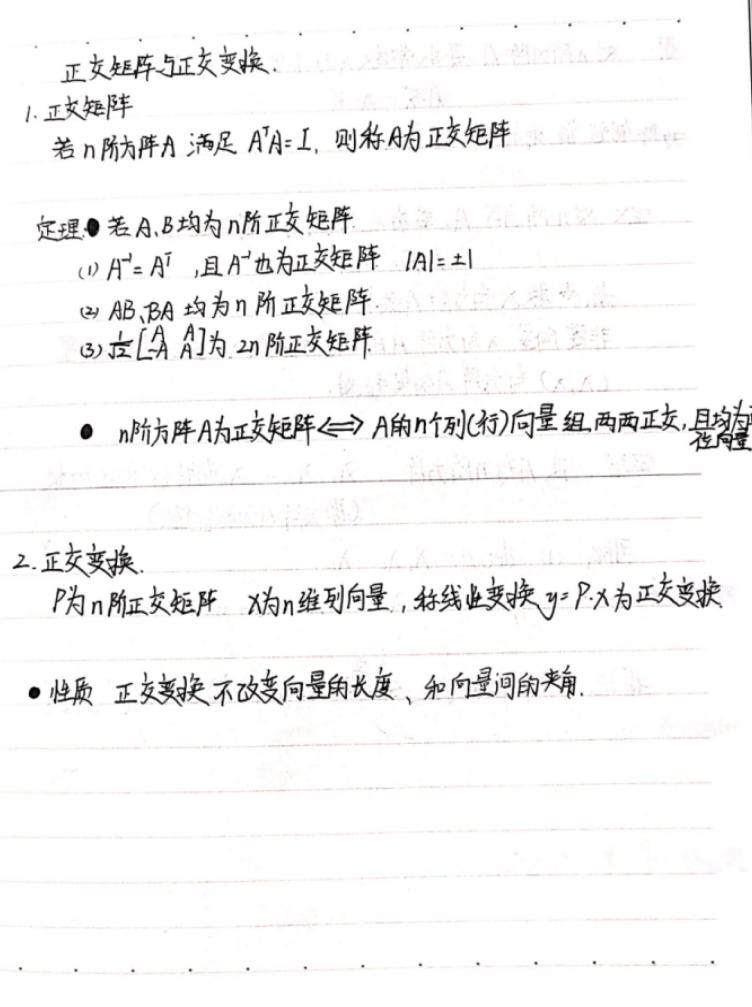 正交矩阵与正交变换.
1. 正交矩阵
若n阶方阵A 满足 AᵀA=I, 则称A为正交矩阵
定理● 若A、B均为n阶正交矩阵.
(1) A⁻¹=Aᵀ ,且A⁻¹也为正交矩阵 |A|=±1
(2) AB、BA 均为n阶正交矩阵.
(3) 1/√2 [A A; -A A]为 2n阶正交矩阵.
● n阶方阵A为正交矩阵⟺ A的n个列(行)向量组两两正交,且均为
位向量
2. 正交变换.
P为n阶正交矩阵 X为n维列向量,称线性变换y=P·X为正交变换
● 性质 正交变换不改变向量的长度、和向量间的夹角.